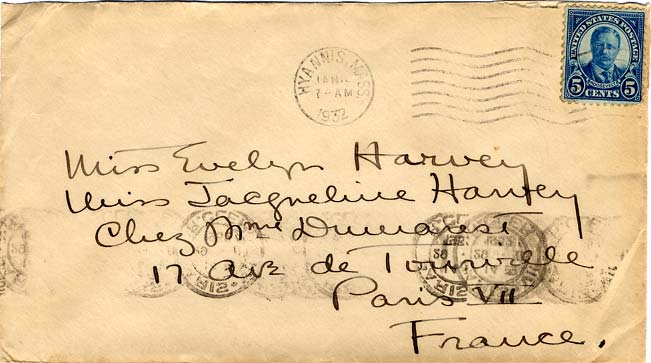 HYANNIS, MASS.
JAN
7-AM
1932
UNITED STATES POSTAGE
ROOSEVELT
5 CENTS 5
Miss Evelyn Harvey
Miss Jacqueline Harvey
Chez Mme Dumarest
17 Ave de Tourville
Paris VII
France.